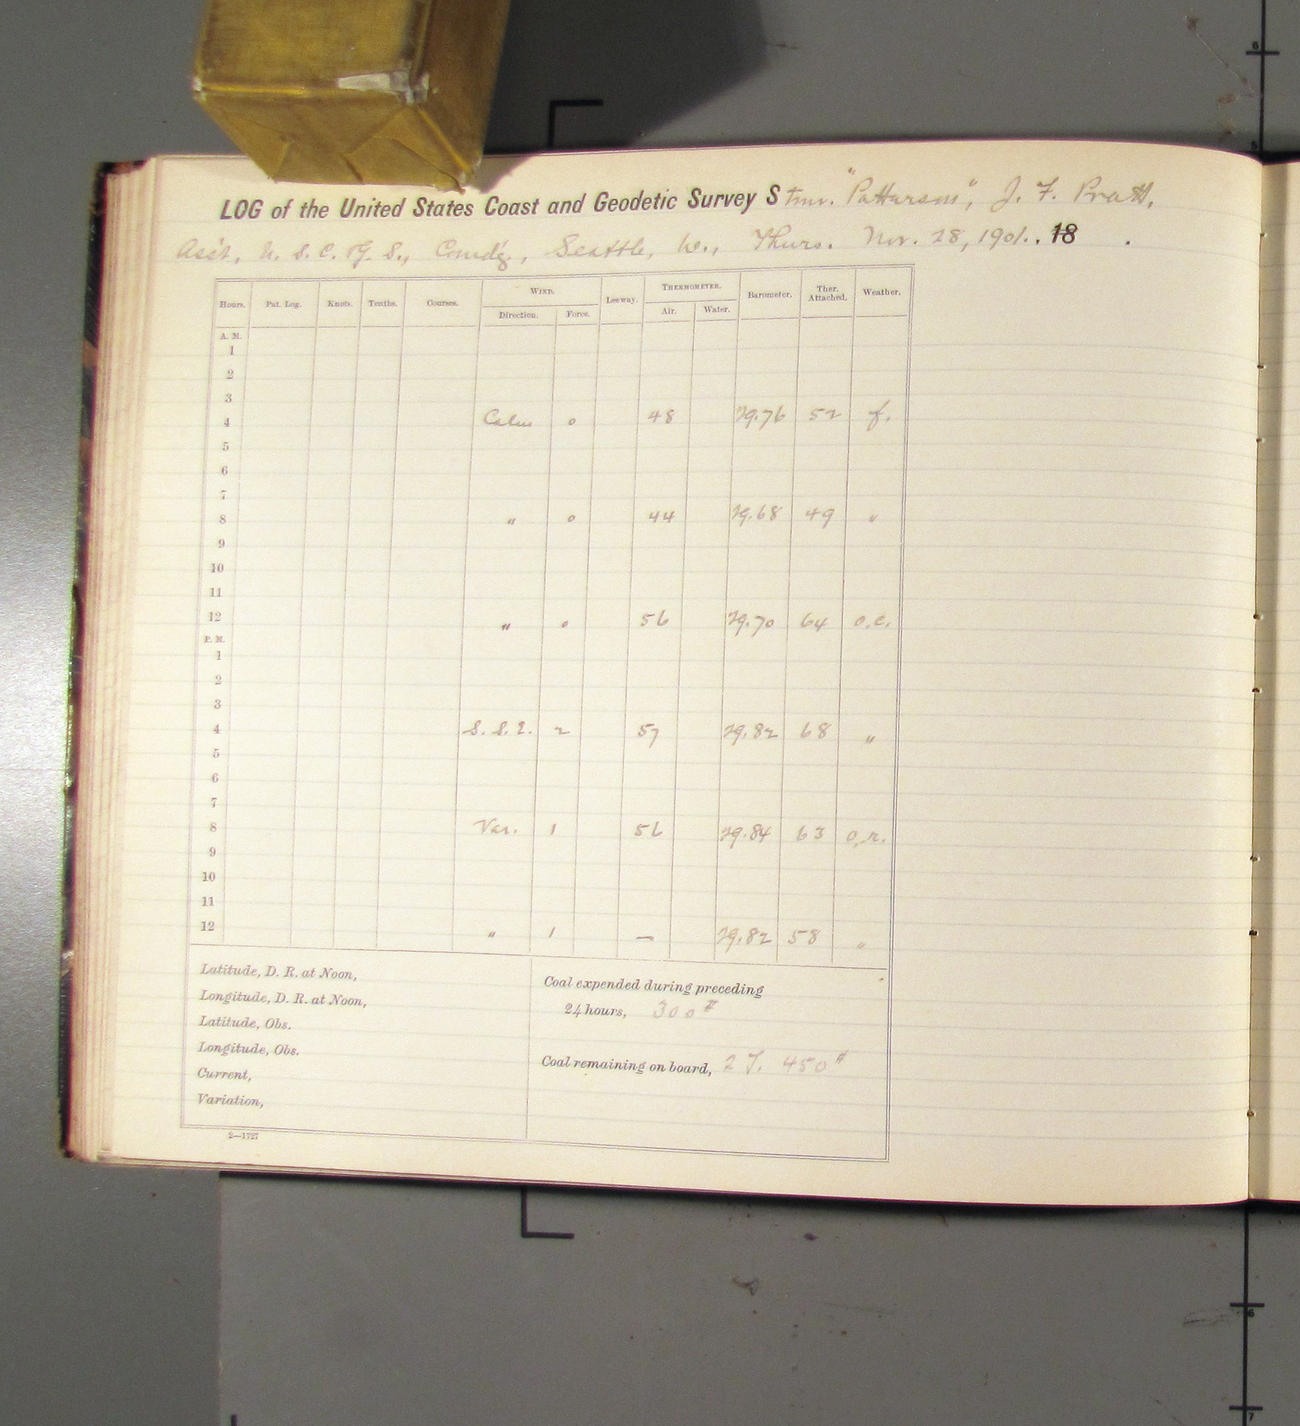 LOG of the United States Coast and Geodetic Survey Stmr. "Patterson", J. F. Pratt,
Ass't, U. S. C. & G. S., Comd'g, Seattle, W., Thurs. Nov. 28, 1901. 18 .
Hours. Pat. Log. Knots. Tenths. Courses. WIND. Leeway. THERMOMETER. Barometer. Ther. Attached. Weather.
Direction. Force. Air. Water.
A. M.
1
2
3
4 Calm 0 48 29.76 52 f.
5
6
7
8 " 0 44 29.68 49 "
9
10
11
12 " 0 56 29.70 64 o.c.
P. M.
1
2
3
4 S. S. E. 2 57 29.82 68 "
5
6
7
8 Var. 1 56 29.84 63 o.r.
9
10
11
12 " 1 — 29.82 58 "
Latitude, D. R. at Noon,
Longitude, D. R. at Noon,
Latitude, Obs.
Longitude, Obs.
Current,
Variation,
Coal expended during preceding
24 hours, 300#
Coal remaining on board, 2 T. 450#
2—1727
6
5
6
7